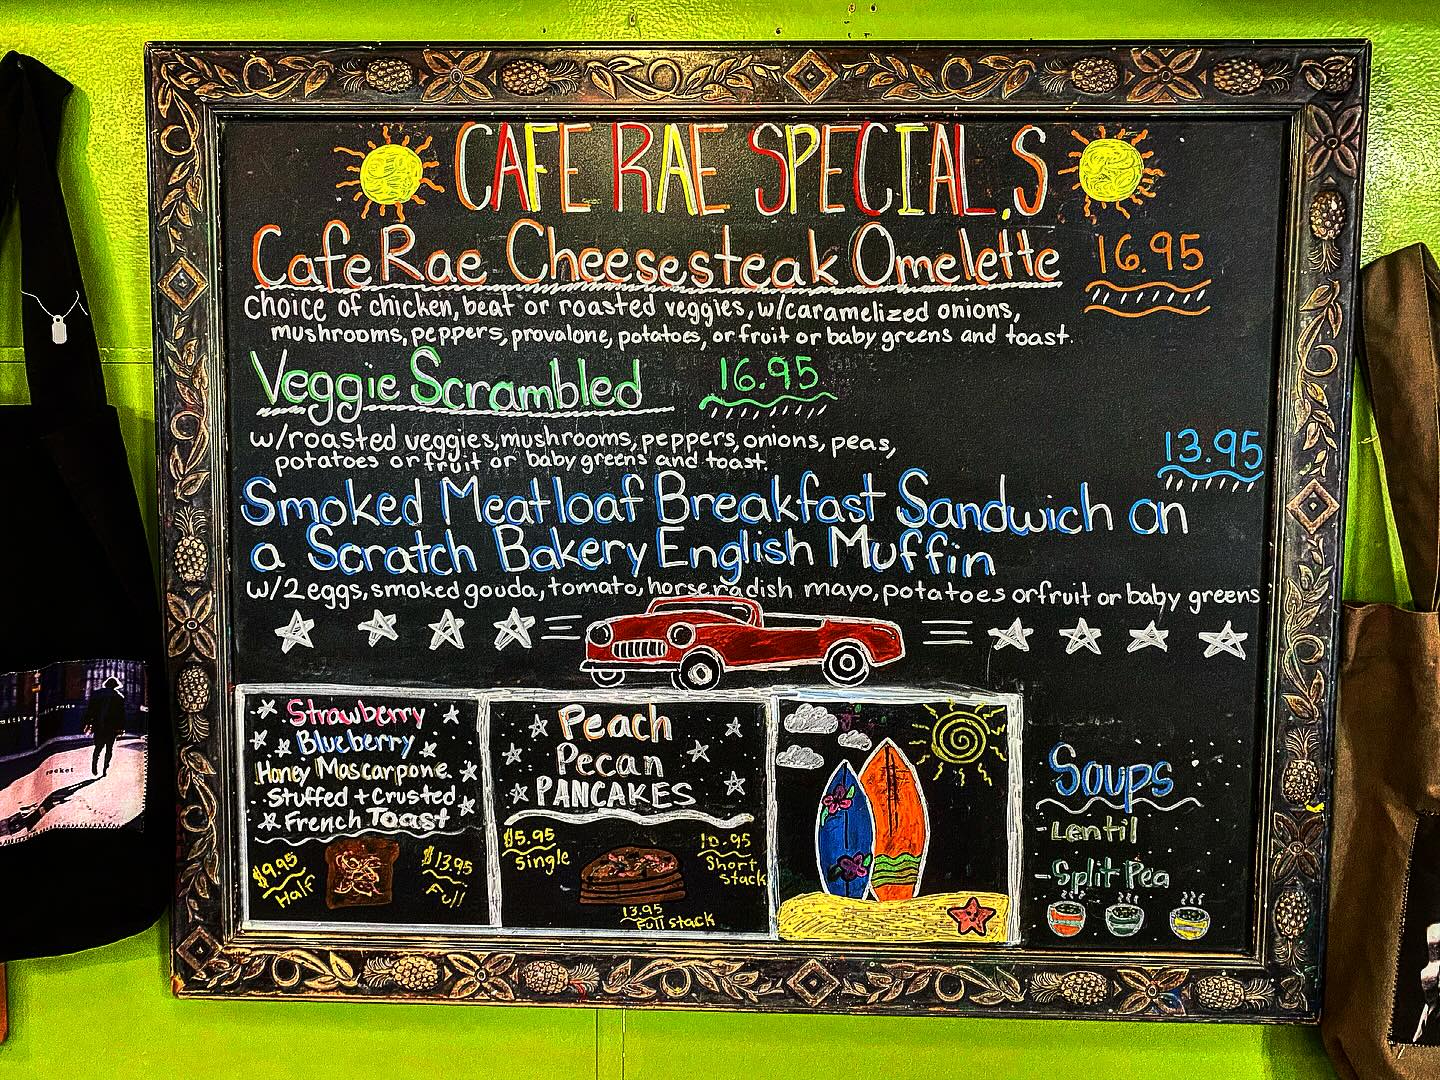 CAFE RAE SPECIAL.S
Cafe Rae Cheesesteak Omelette 16.95
Choice of chicken, beat or roasted veggies, w/caramelized onions,
mushrooms, peppers, provalone, potatoes, or fruit or baby greens and toast.
Veggie Scrambled 16.95
w/roasted veggies, mushrooms, peppers, onions, peas,
potatoes or fruit or baby greens and toast.
13.95
Smoked Meatloaf Breakfast Sandwich on
a Scratch Bakery English Muffin
w/2 eggs, smoked gouda, tomato, horseradish mayo, potatoes or fruit or baby greens
Strawberry
Blueberry
Honey Mascarpone
Stuffed + Crusted
French Toast
$9.95
Half
$13.95
Full
Peach
Pecan
PANCAKES
$5.95
Single
10.95
Short
stack
13.95
Full stack
Soups
-Lentil
-Split Pea